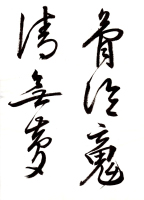 骨冷魂
清無夢